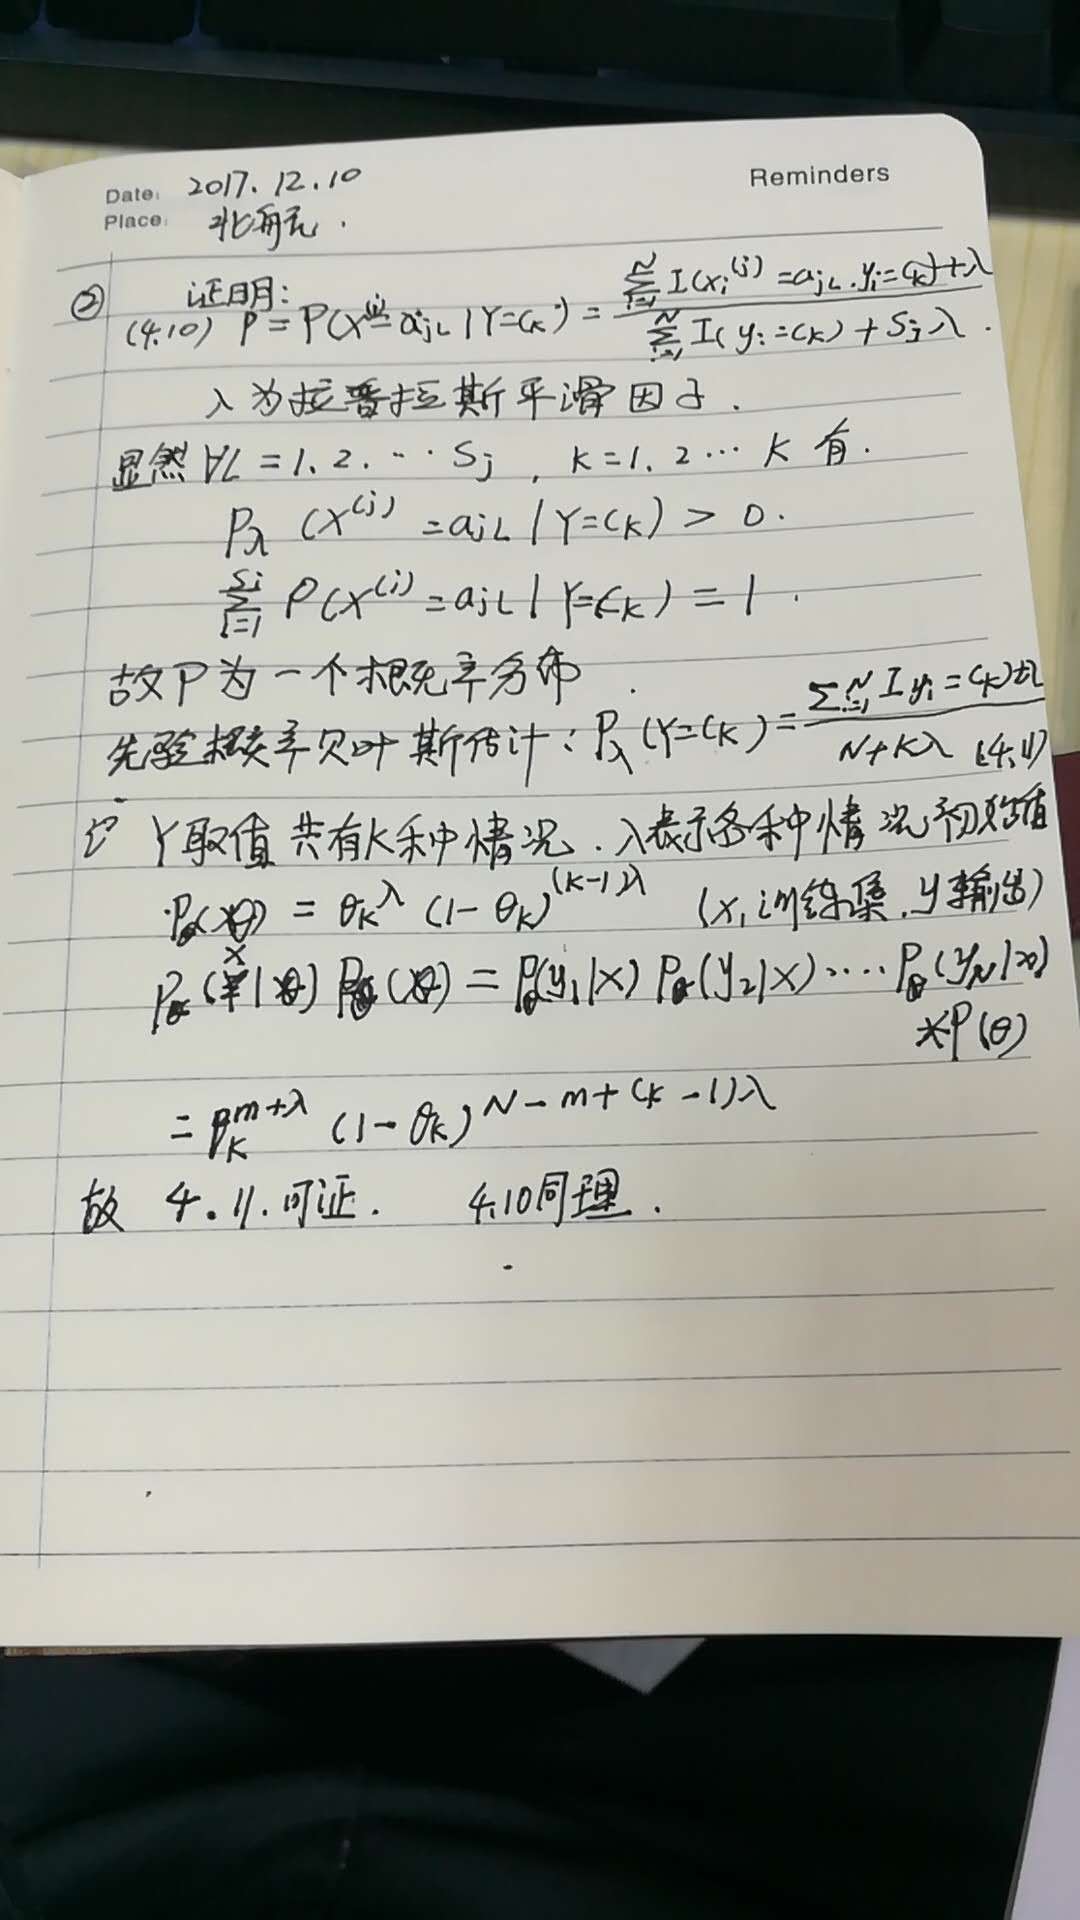 Reminders
Date: 2017.12.10
Place: 北航.
② 证明:
(4.10) P = P(X^(j) = a_jL | Y=C_k) = \frac{\sum_{i=1}^{N} I(x_i^(j) = a_jL, y_i=C_k)+λ}{\sum_{i=1}^{N} I(y_i=C_k) + S_jλ}.
λ为拉普拉斯平滑因子.
显然 ∀L = 1, 2, … S_j , k = 1, 2 … K 有.
P_λ (X^(j) = a_jL | Y=C_k) > 0.
\sum_{l=1}^{S_j} P(X^(j) = a_jL | Y=C_k) = 1 .
故 P 为一个概率分布 .
先验概率贝叶斯估计: P_λ (Y=C_k) = \frac{\sum_{i=1}^{N} I y_i = C_k)+λ}{N+Kλ} (4.11)
Y取值 共有K种情况. λ表示各种情况初始值
P(θ) = θ_k^λ (1-θ_k)^{(k-1)λ} (x, 训练集, y输出)
P(x|θ) P(θ) = P_θ(y_1|X) P_θ(y_2|X) …. P_θ(y_N|X)
*P(θ)
= θ_k^{m+λ} (1-θ_k)^{N-m+(k-1)λ}
故 4.11.可证. 4.10同理.